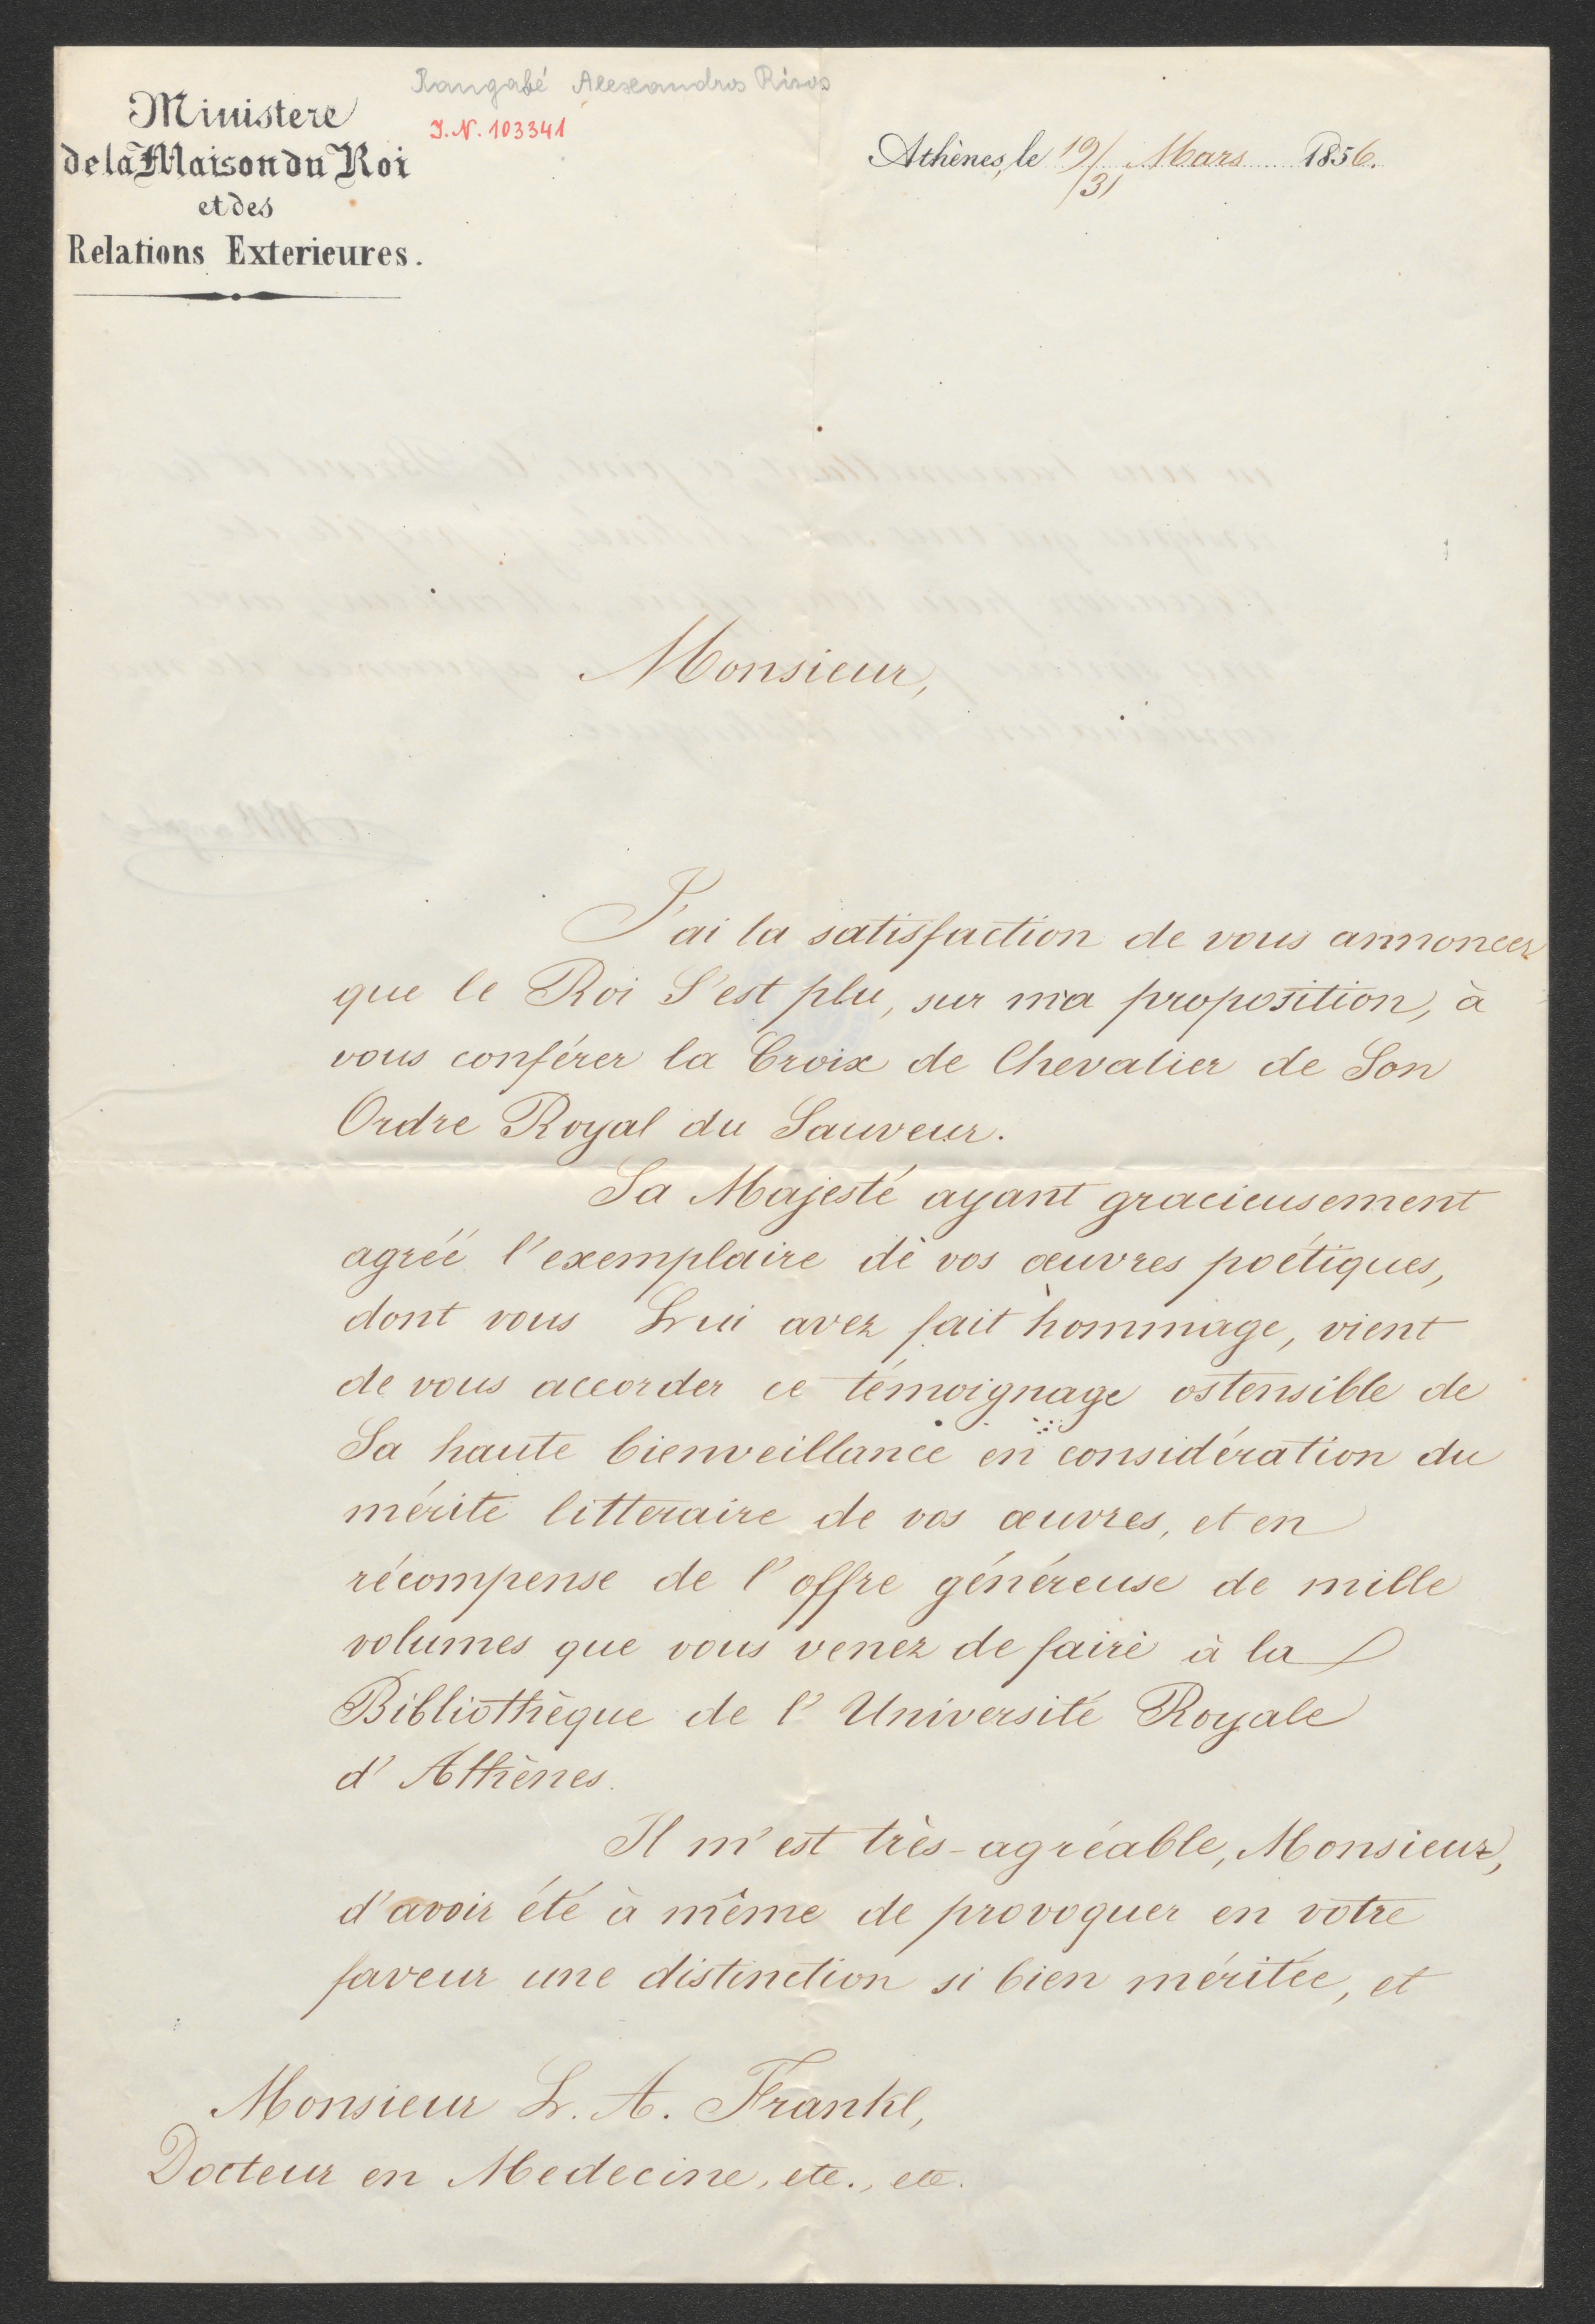 Rangabé Alexandros Risos
Ministere
de la Maison du Roi
et des
Relations Exterieures.
I.N. 103341
Athènes, le 19/31 Mars 1856.
Monsieur,
J'ai la satisfaction de vous annoncer
que le Roi S'est plu, sur ma proposition, à
vous conférer la Croix de Chevalier de Son
Ordre Royal du Sauveur.
Sa Majesté ayant gracieusement
agréé l'exemplaire de vos œuvres poétiques,
dont vous Lui avez fait hommage, vient
de vous accorder ce témoignage ostensible de
Sa haute bienveillance en considération du
mérite litteraire de vos œuvres, et en
récompense de l'offre généreuse de mille
volumes que vous venez de faire à la
Bibliothèque de l'Université Royale
d'Athènes.
Il m'est très-agréable, Monsieur,
d'avoir été à même de provoquer en votre
faveur une distinction si bien méritée, et
Monsieur L. A. Frankl,
Docteur en Medecine, etc., etc.